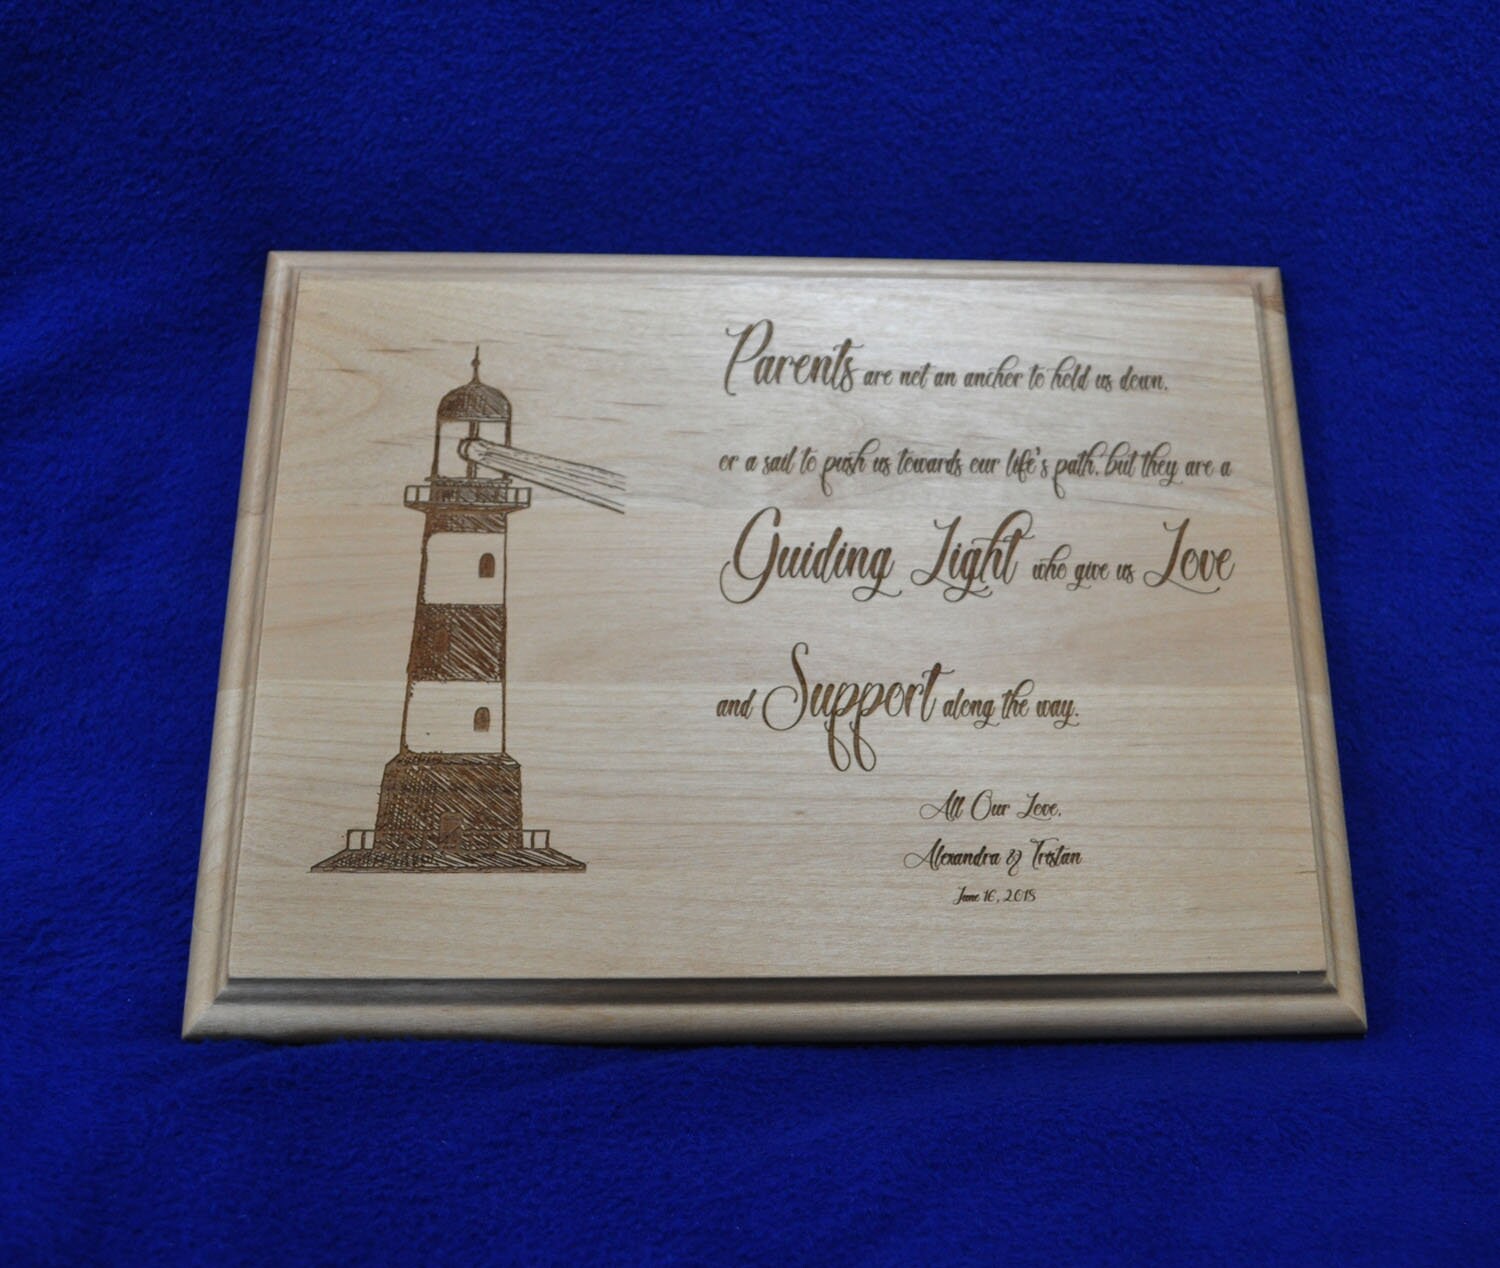 Parents are not an anchor to hold us down,
or a sail to push us towards our life's path, but they are a
Guiding Light who give us Love
and Support along the way.
All Our Love,
Alexandra & Tristan
June 16, 2018